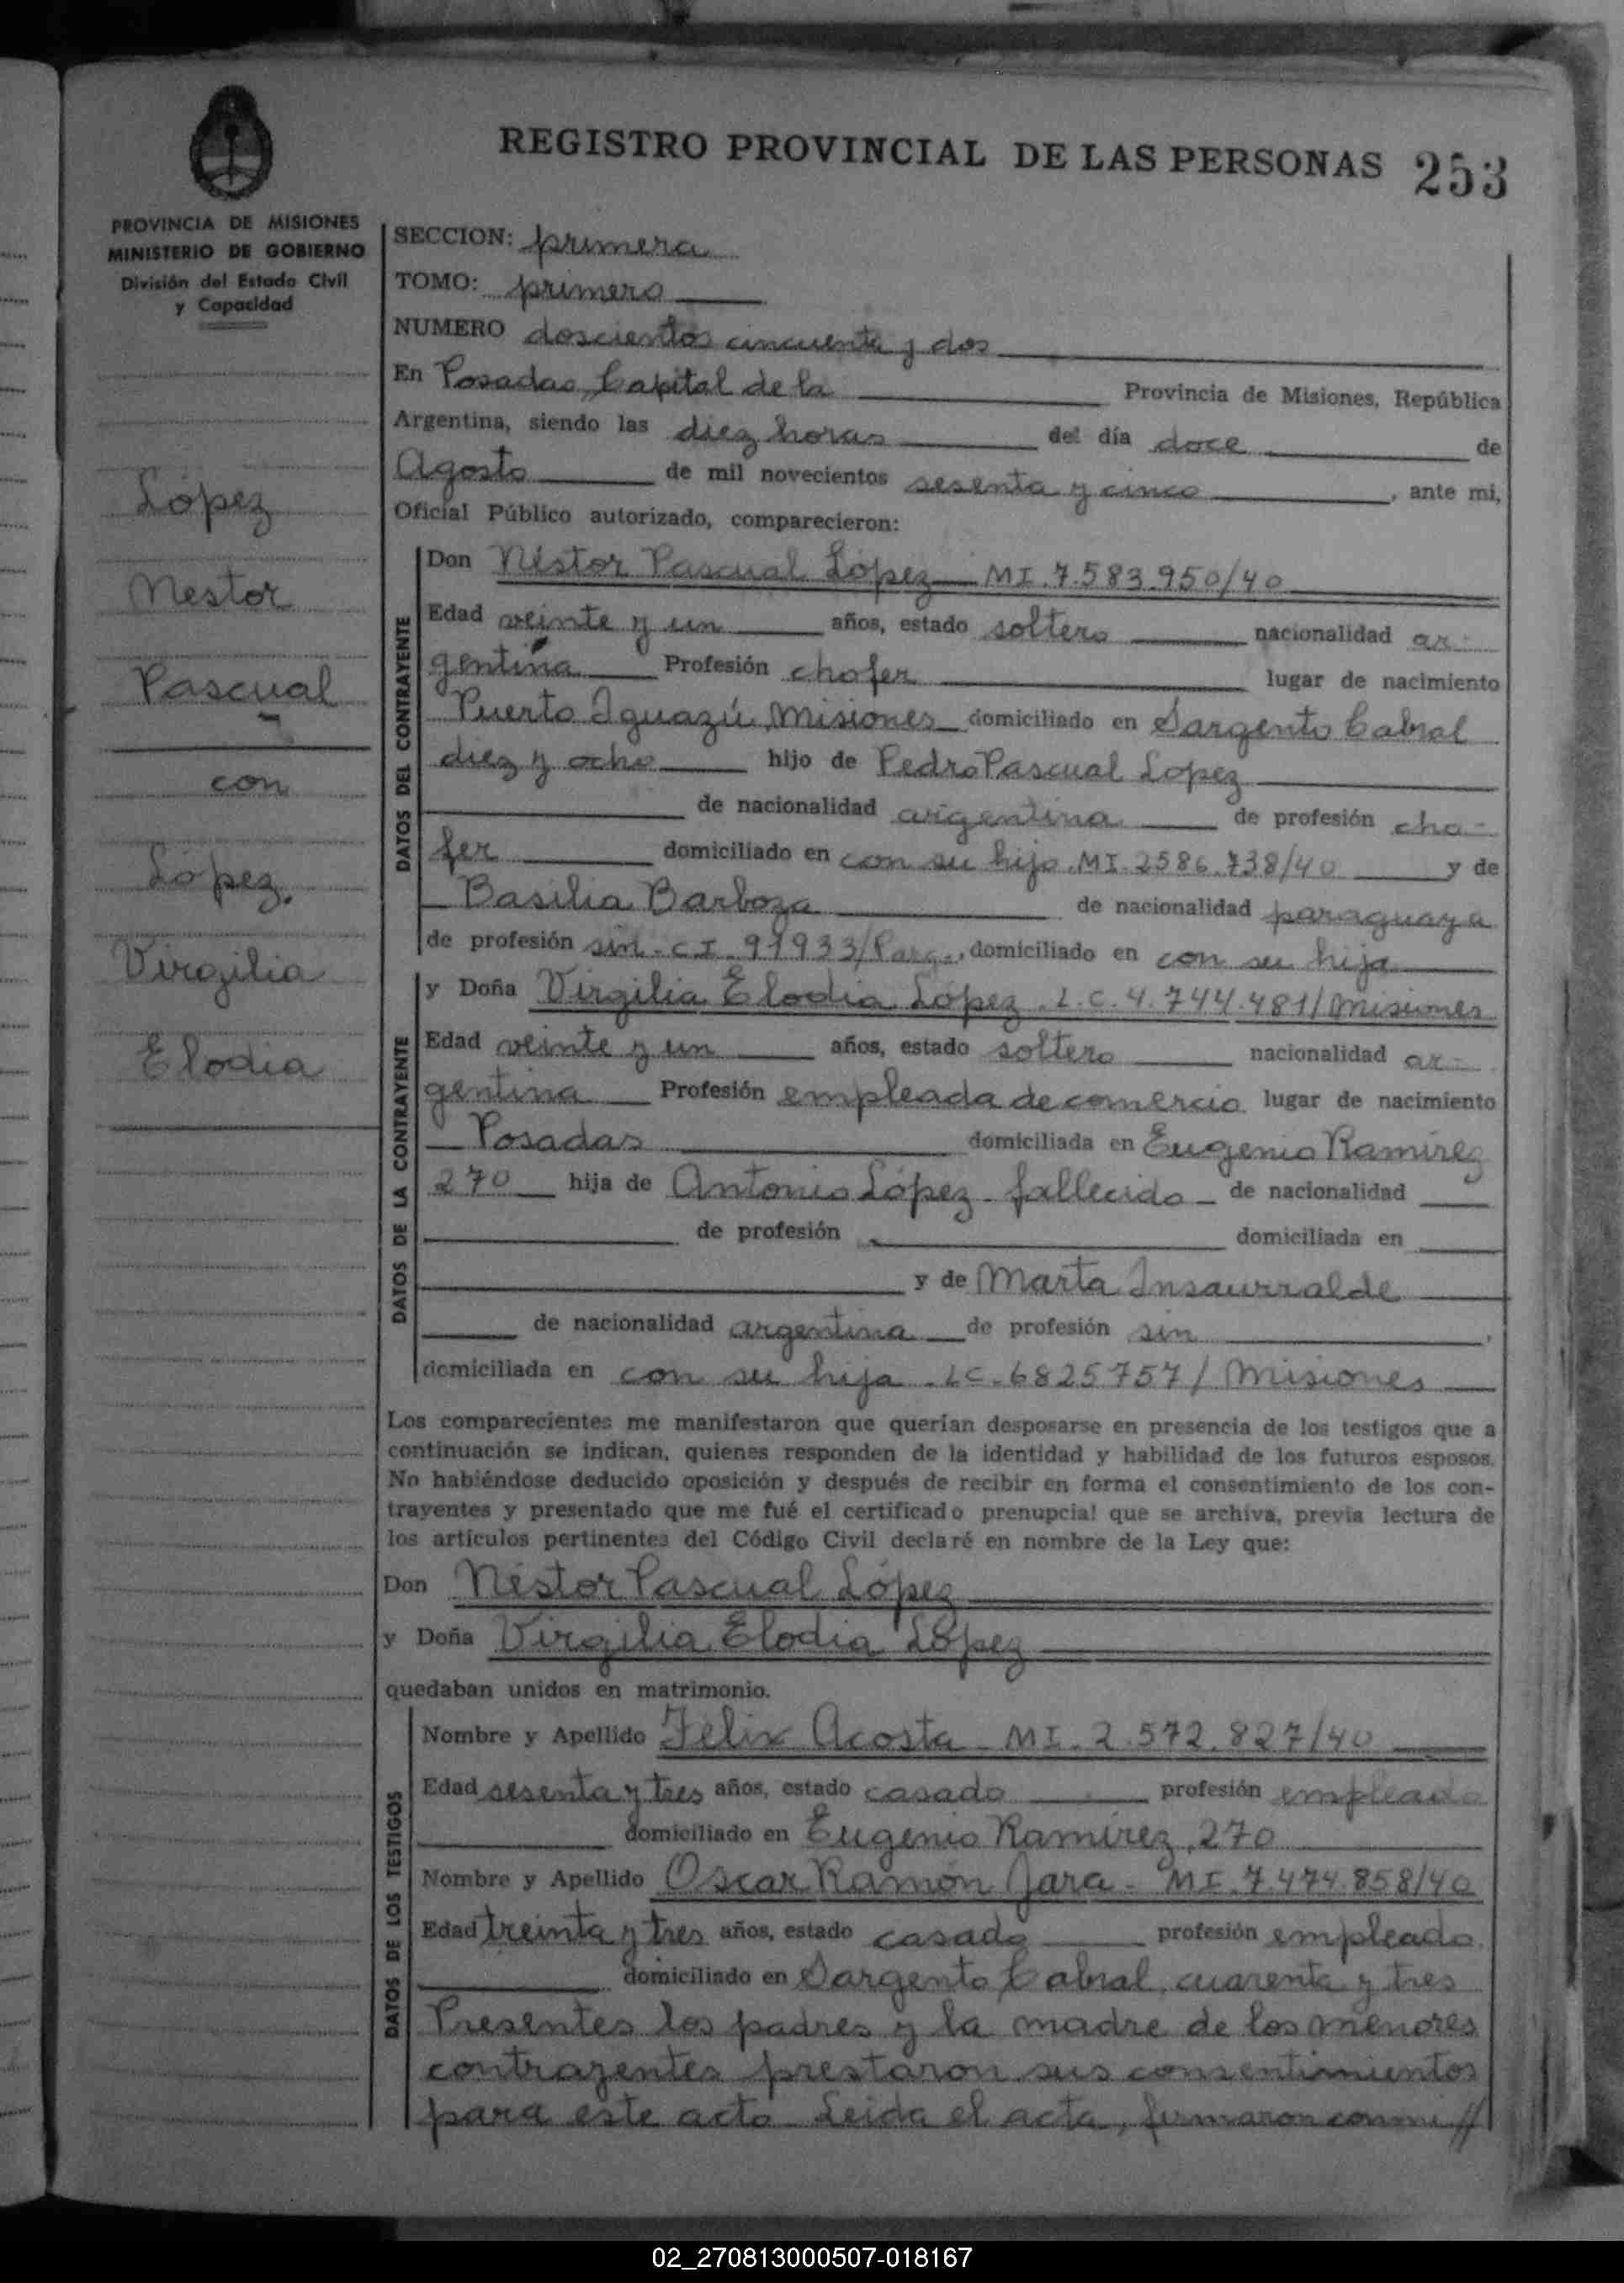 REGISTRO PROVINCIAL DE LAS PERSONAS 253
PROVINCIA DE MISIONES
MINISTERIO DE GOBIERNO
División del Estado Civil
y Capacidad
López
Nestor
Pascual
con
López.
Virgilia
Elodia
SECCION: primera
TOMO: primero
NUMERO doscientos cincuenta y dos
En Posadas, Capital de la Provincia de Misiones, República
Argentina, siendo las diez horas del día doce de
Agosto de mil novecientos sesenta y cinco, ante mi,
Oficial Público autorizado, comparecieron:
DATOS DEL CONTRAYENTE
Don Néstor Pascual López MI. 7.583.950/40
Edad veinte y un años, estado soltero nacionalidad ar-
gentina Profesión chofer lugar de nacimiento
Puerto Iguazú, Misiones domiciliado en Sargento Cabral
diez y ocho hijo de Pedro Pascual Lopez
de nacionalidad argentina de profesión cho-
fer domiciliado en con su hijo. MI. 2586.738/40 y de
Basilia Barboza de nacionalidad paraguaya
de profesión sin - C I. 91933/Parg., domiciliado en con su hija
DATOS DE LA CONTRAYENTE
y Doña Virgilia Elodia López. L.C. 4.744.481/Misiones
Edad veinte y un años, estado soltera nacionalidad ar-
gentina Profesión empleada de comercio lugar de nacimiento
Posadas domiciliada en Eugenio Ramirez
270 hija de Antonio López - fallecido - de nacionalidad
de profesión domiciliada en
y de Marta Insaurralde
de nacionalidad argentina de profesión sin,
domiciliada en con su hija. LC. 6825757/ Misiones
Los comparecientes me manifestaron que querían desposarse en presencia de los testigos que a
continuación se indican, quienes responden de la identidad y habilidad de los futuros esposos.
No habiéndose deducido oposición y después de recibir en forma el consentimiento de los con-
trayentes y presentado que me fué el certificado prenupcial que se archiva, previa lectura de
los artículos pertinentes del Código Civil declaré en nombre de la Ley que:
Don Néstor Pascual López
y Doña Virgilia Elodia López
quedaban unidos en matrimonio.
DATOS DE LOS TESTIGOS
Nombre y Apellido Félix Acosta - MI. 2.572.827/40
Edad sesenta y tres años, estado casado profesión empleado
domiciliado en Eugenio Ramirez, 270
Nombre y Apellido Oscar Ramón Jara - MI. 7.474.858/40
Edad treinta y tres años, estado casado profesión empleado
domiciliado en Sargento Cabral, cuarenta y tres
Presentes los padres y la madre de los menores
contrayentes prestaron sus consentimientos
para este acto. Leida el acta, firmaron conmi //
02_270813000507-018167